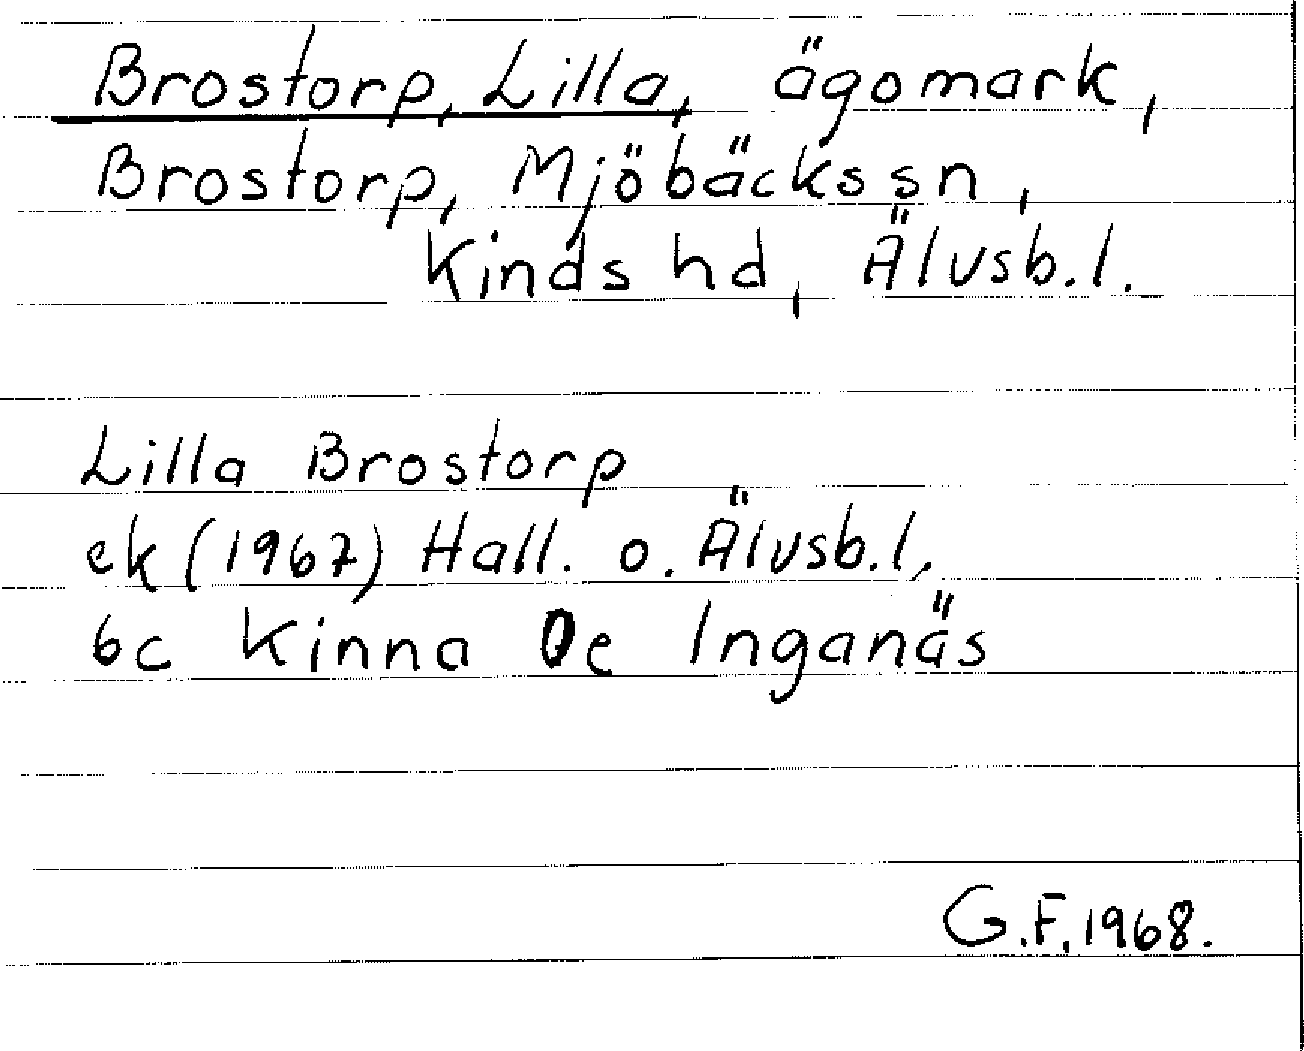 Brostorp, Lilla, ägomark,
Brostorp, Mjöbäcks sn,
Kinds hd, Älvsb.l.
Lilla Brostorp
ek (1967) Hall. o. Älvsb.l,
6c Kinna 0e Inganäs
G.F. 1968.